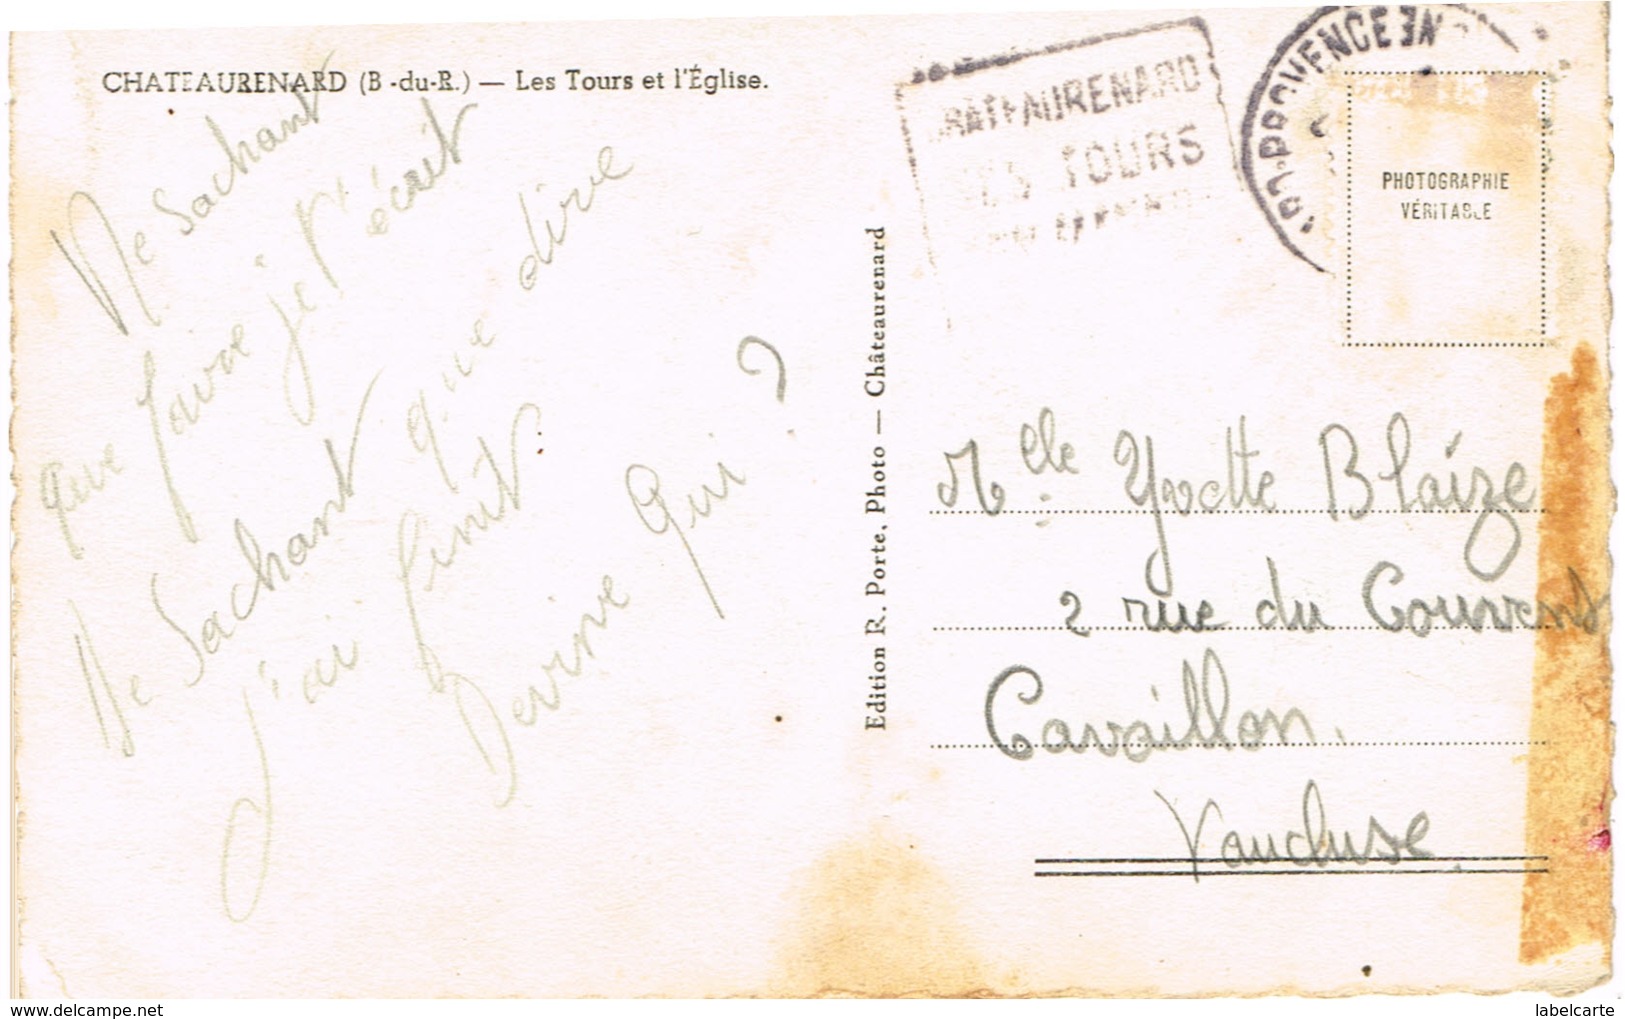 CHATEAURENARD (B-du-R.) — Les Tours et l'Église.
Ne Sachant
que faire je t'écrit
Ne Sachant que dire
j'ai finit
Devine Qui ?
Edition R. Porte, Photo — Châteaurenard
CHATEAURENARD
SES TOURS
PROVENCE
PHOTOGRAPHIE
VÉRITABLE
Melle Yvette Blaize
2 rue du Couvent
Cavaillon.
Vaucluse
www.delcampe.net
labelcarte